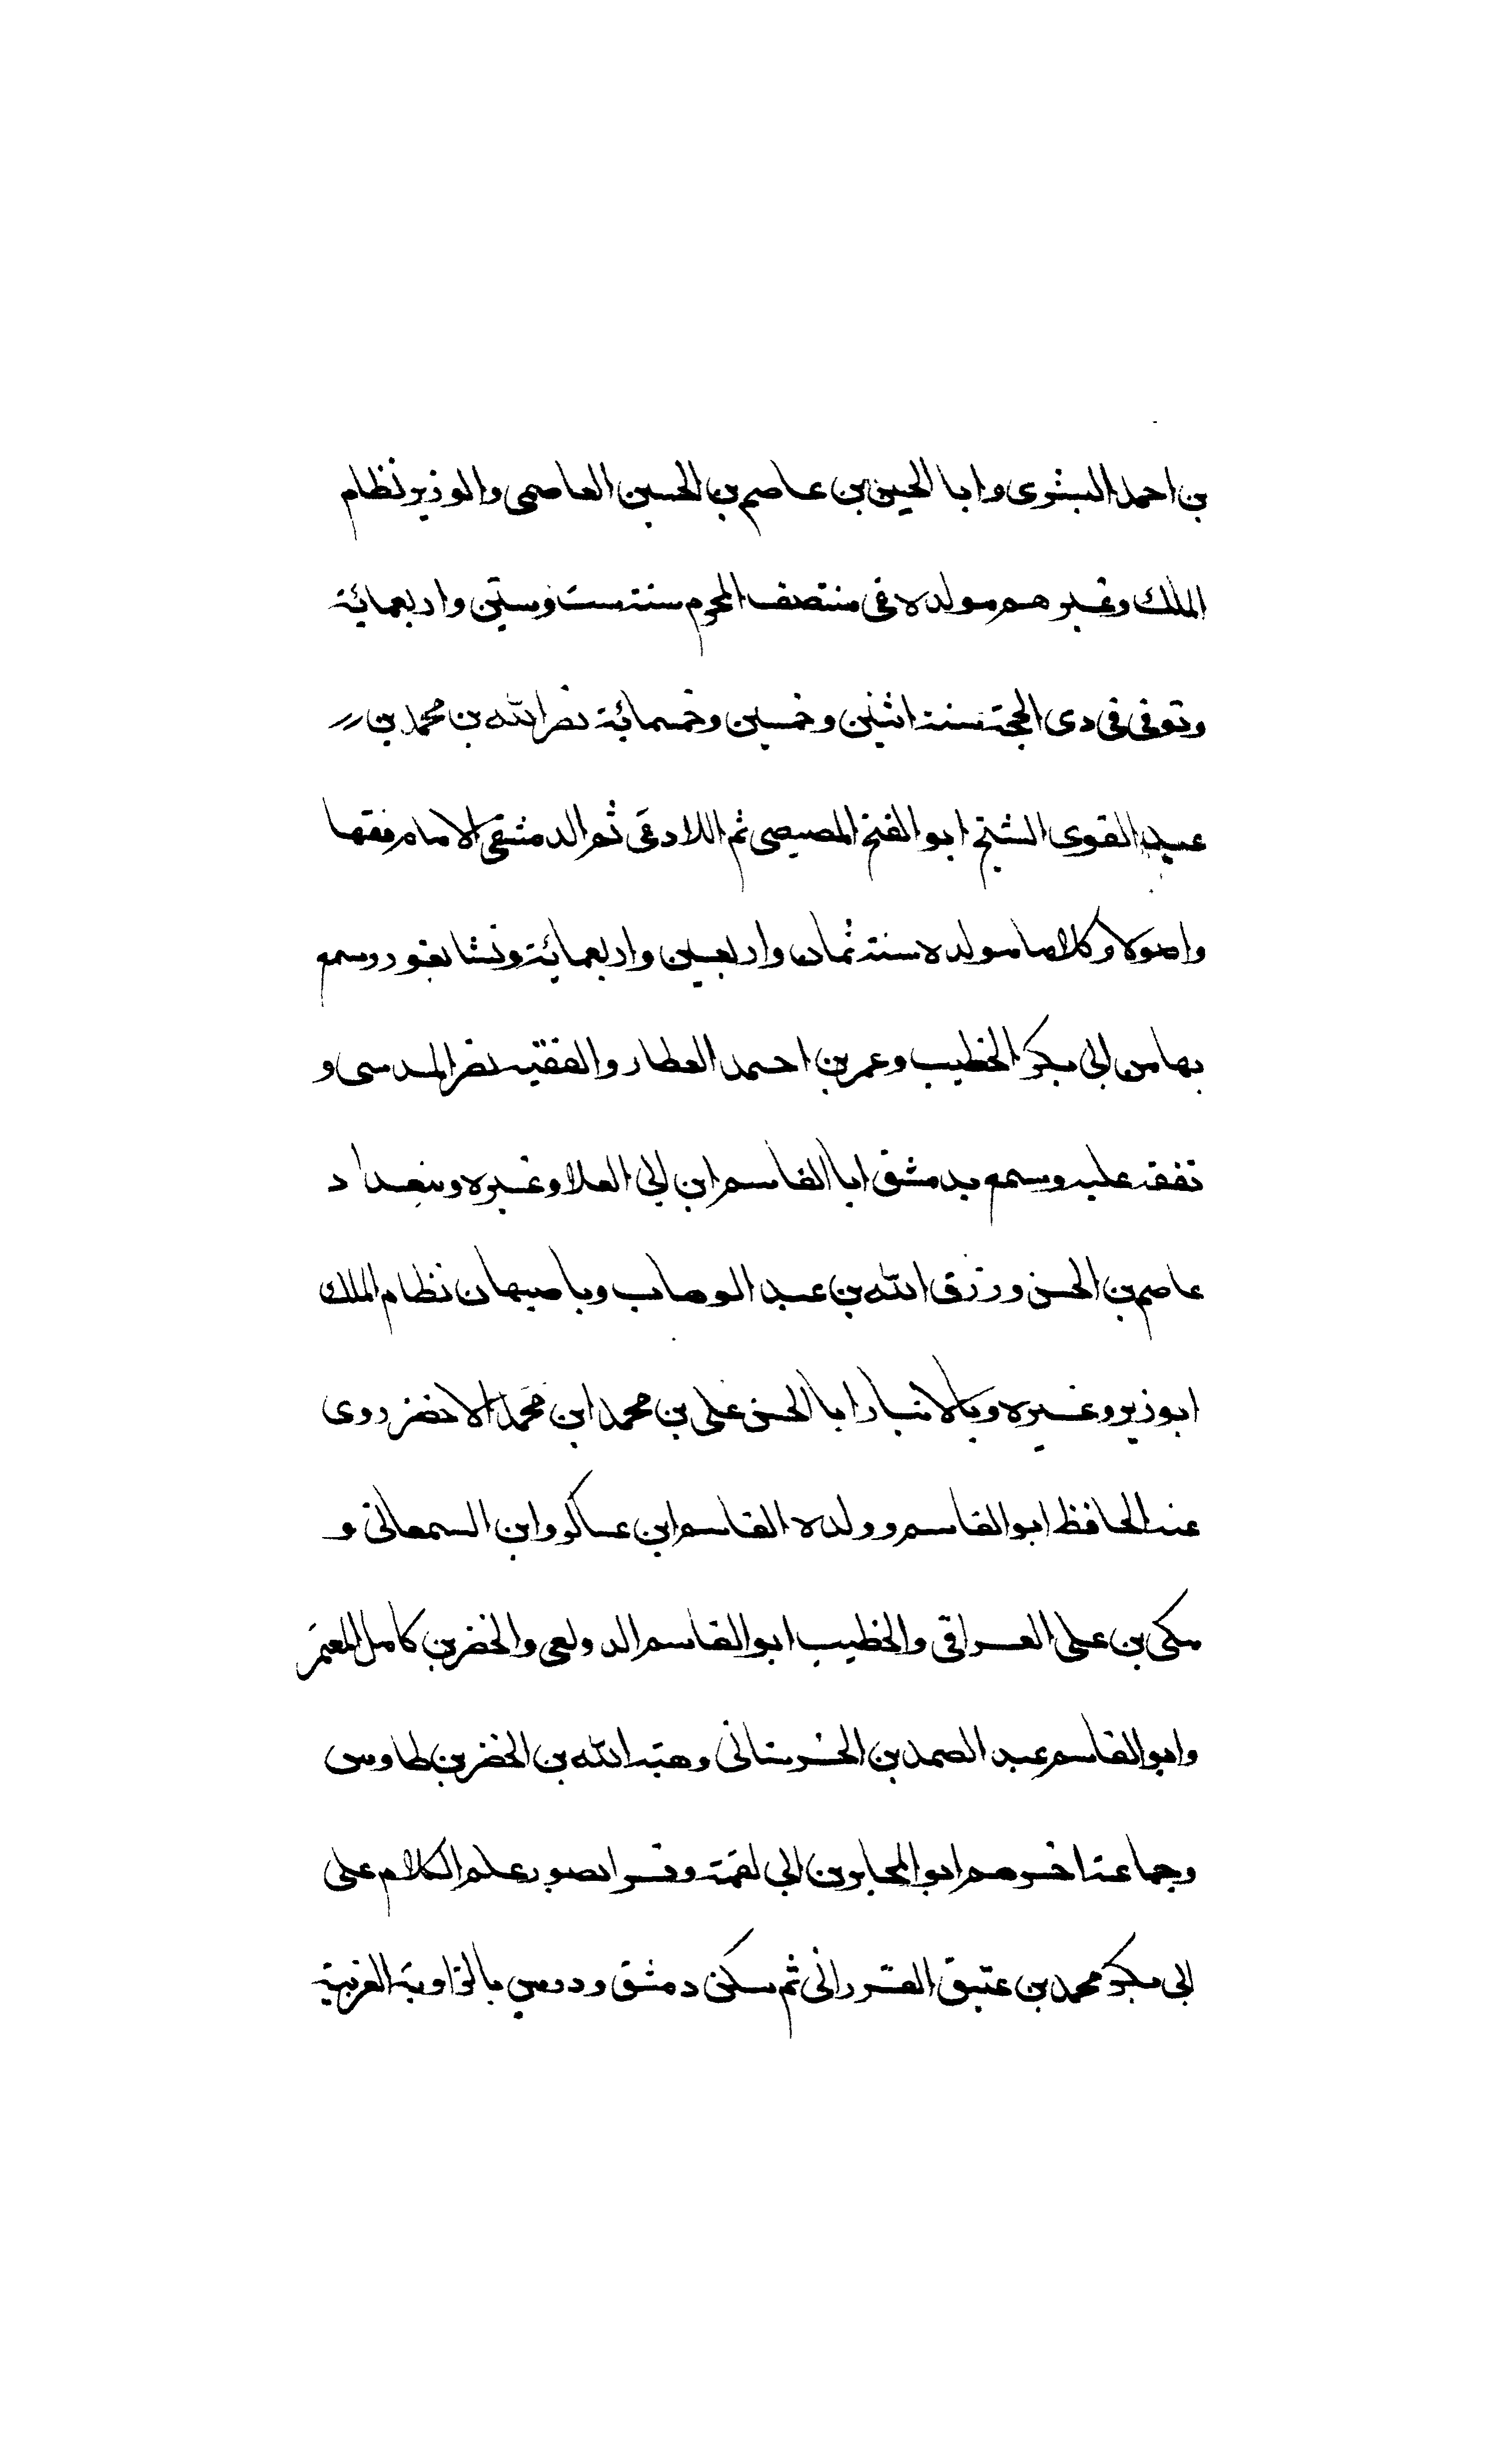 بن احمد البشرى وابا الحين بن عاصم بن الحسين العاصمى والوزير نظام
الملك وغيرهم مولده فى منتصف المحرم سنة ست وستين واربعمائة
وتوفى فى دى الحجة سنة اثنين وخمسين وخمسمائة نصر الله بن محمد بن
عبد القوى الشيخ ابو الفتح المصيصى ثم اللادقى ثم الدمشقى الامام فقها
واصولا وكلاما مولده سنة ثمان واربعين واربعمائة ونشا بفور وسمع
بها من ابى بكر الخطيب وعمر بن احمد العطار والفقيه نصر المدسى و
تفقه عليه وسمع بدمشق ابا القاسم ابن ابى العلا وغيره وببغداد
عاصم بن الحسن ورزق الله بن عبد الوهاب وباصبهان نظام الملك
ابوزير وغيره وبالانبار ابا الحسن على بن محمد ابن محمد الاخضر روى
عنه الحافظ ابو القاسم وولده القاسم ابن عساكر وابن السمعانى و
مكى بن على العراقى والخطيب ابو القاسم الدولعى والخضر بن كامل المعبر
وابو القاسم عبد الصمد بن الحرستانى وهبة الله بن الخضر بن طاوس
وجماعة اخرهم ابو المحابر بن ابى لقمة وقرا بصور علم الكلام على
ابى بكر محمد بن عتيق القيررانى ثم سكن دمشق ودرس بالزاوية الغربية